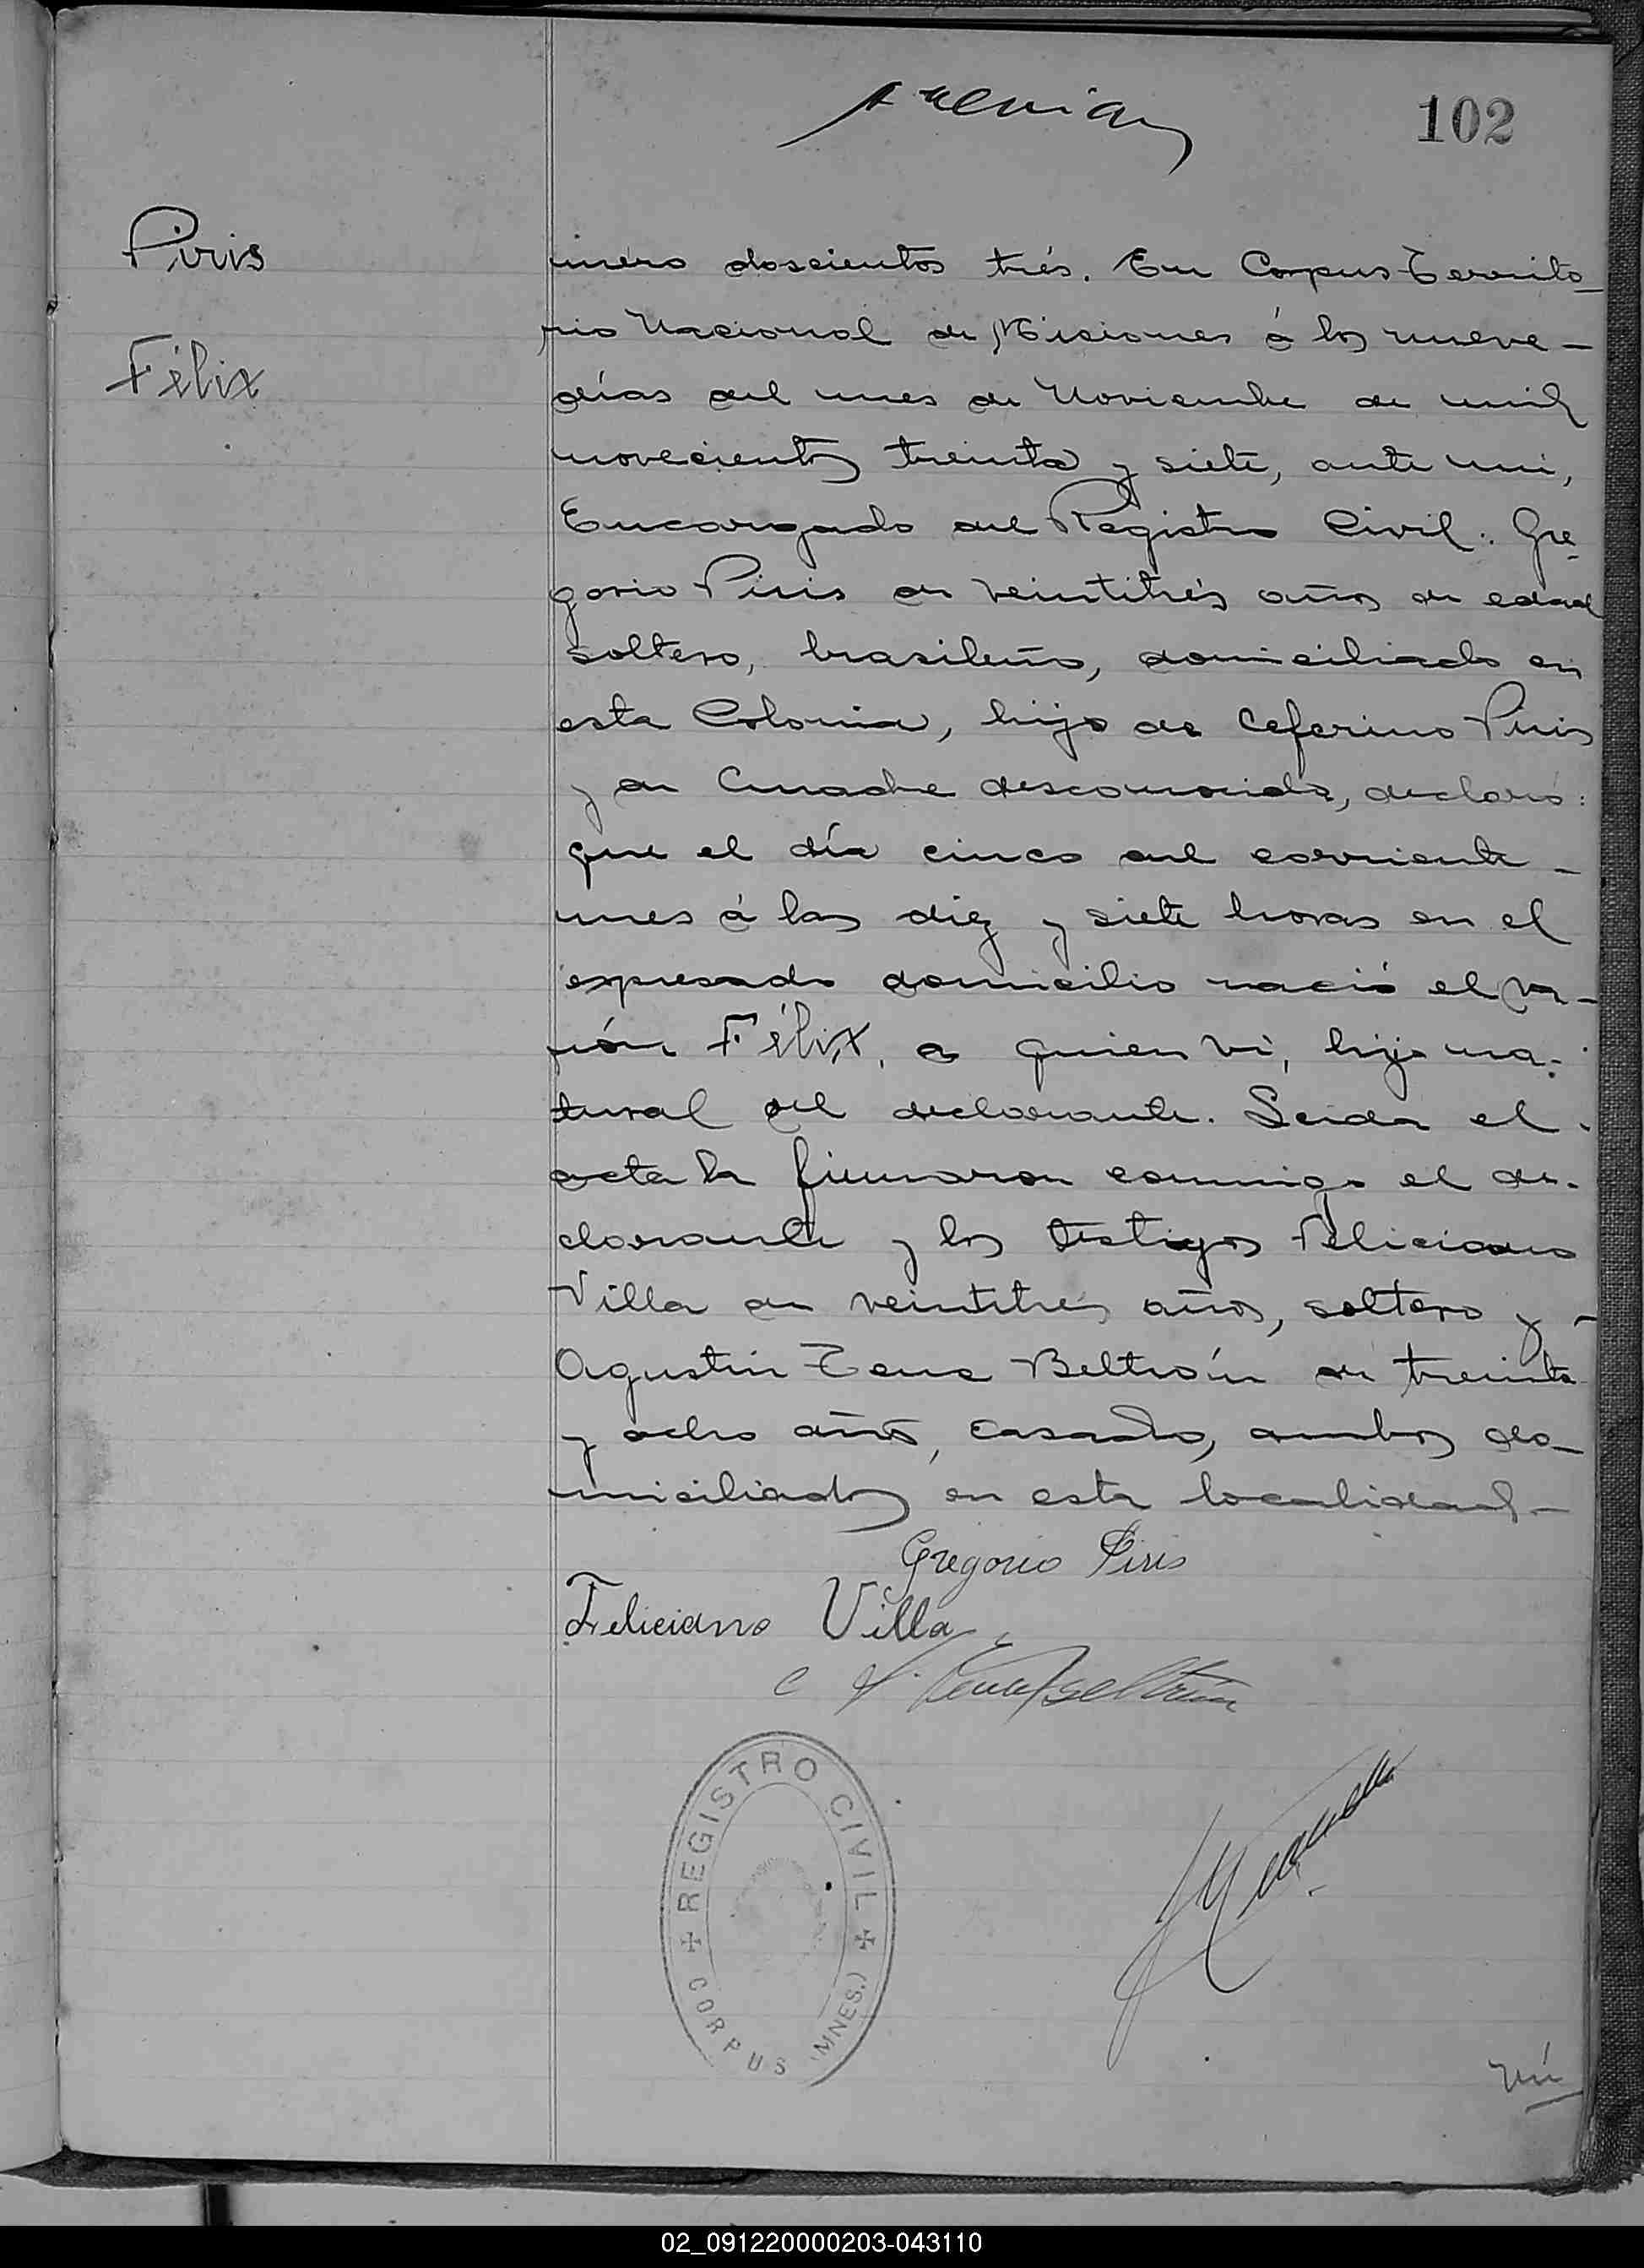 102
Piris
Félix
mero doscientos trés. En Corpus Territo-
rio Nacional de Misiones á los nueve -
días del mes de Noviembre de mil
novecientos treinta y siete, ante mi,
Encargado del Registro Civil: Gre-
gorio Piris de veintitrés años de edad
soltero, brasileño, domiciliado en
esta Colonia, hijo de Ceferino Piris
y de madre desconocida, declaró:
que el día cinco del corriente -
mes á las diez y siete horas en el
expresado domicilio nació el va-
rón Félix, a quien vi, hijo na-
tural del declarante. Leida el
acta la firmaron conmigo el de-
clarante y los testigos Feliciano
Villa de veintitres años, soltero y -
Agustin Tena Beltrán de treinta
y ocho años, casado, ambos do-
miciliados en esta localidad -
Gregorio Piris
Feliciano Villa
Tena Beltrán
REGISTRO CIVIL
CORPUS (MNES.)
Nú
02_091220000203-043110